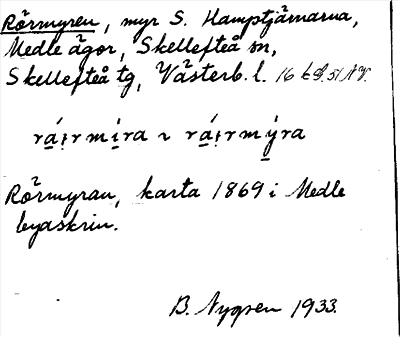 Rörmyren, myr S. Hamptjärnarna,
Medle ägor, Skellefteå sn,
Skellefteå tg, Västerb. l.
rá̱i̯rmi̱ra ~ rá̱i̯rmy̱ra
Rörmyran, karta 1869 i Medle
byaskrin.
B. Nygren 1933.